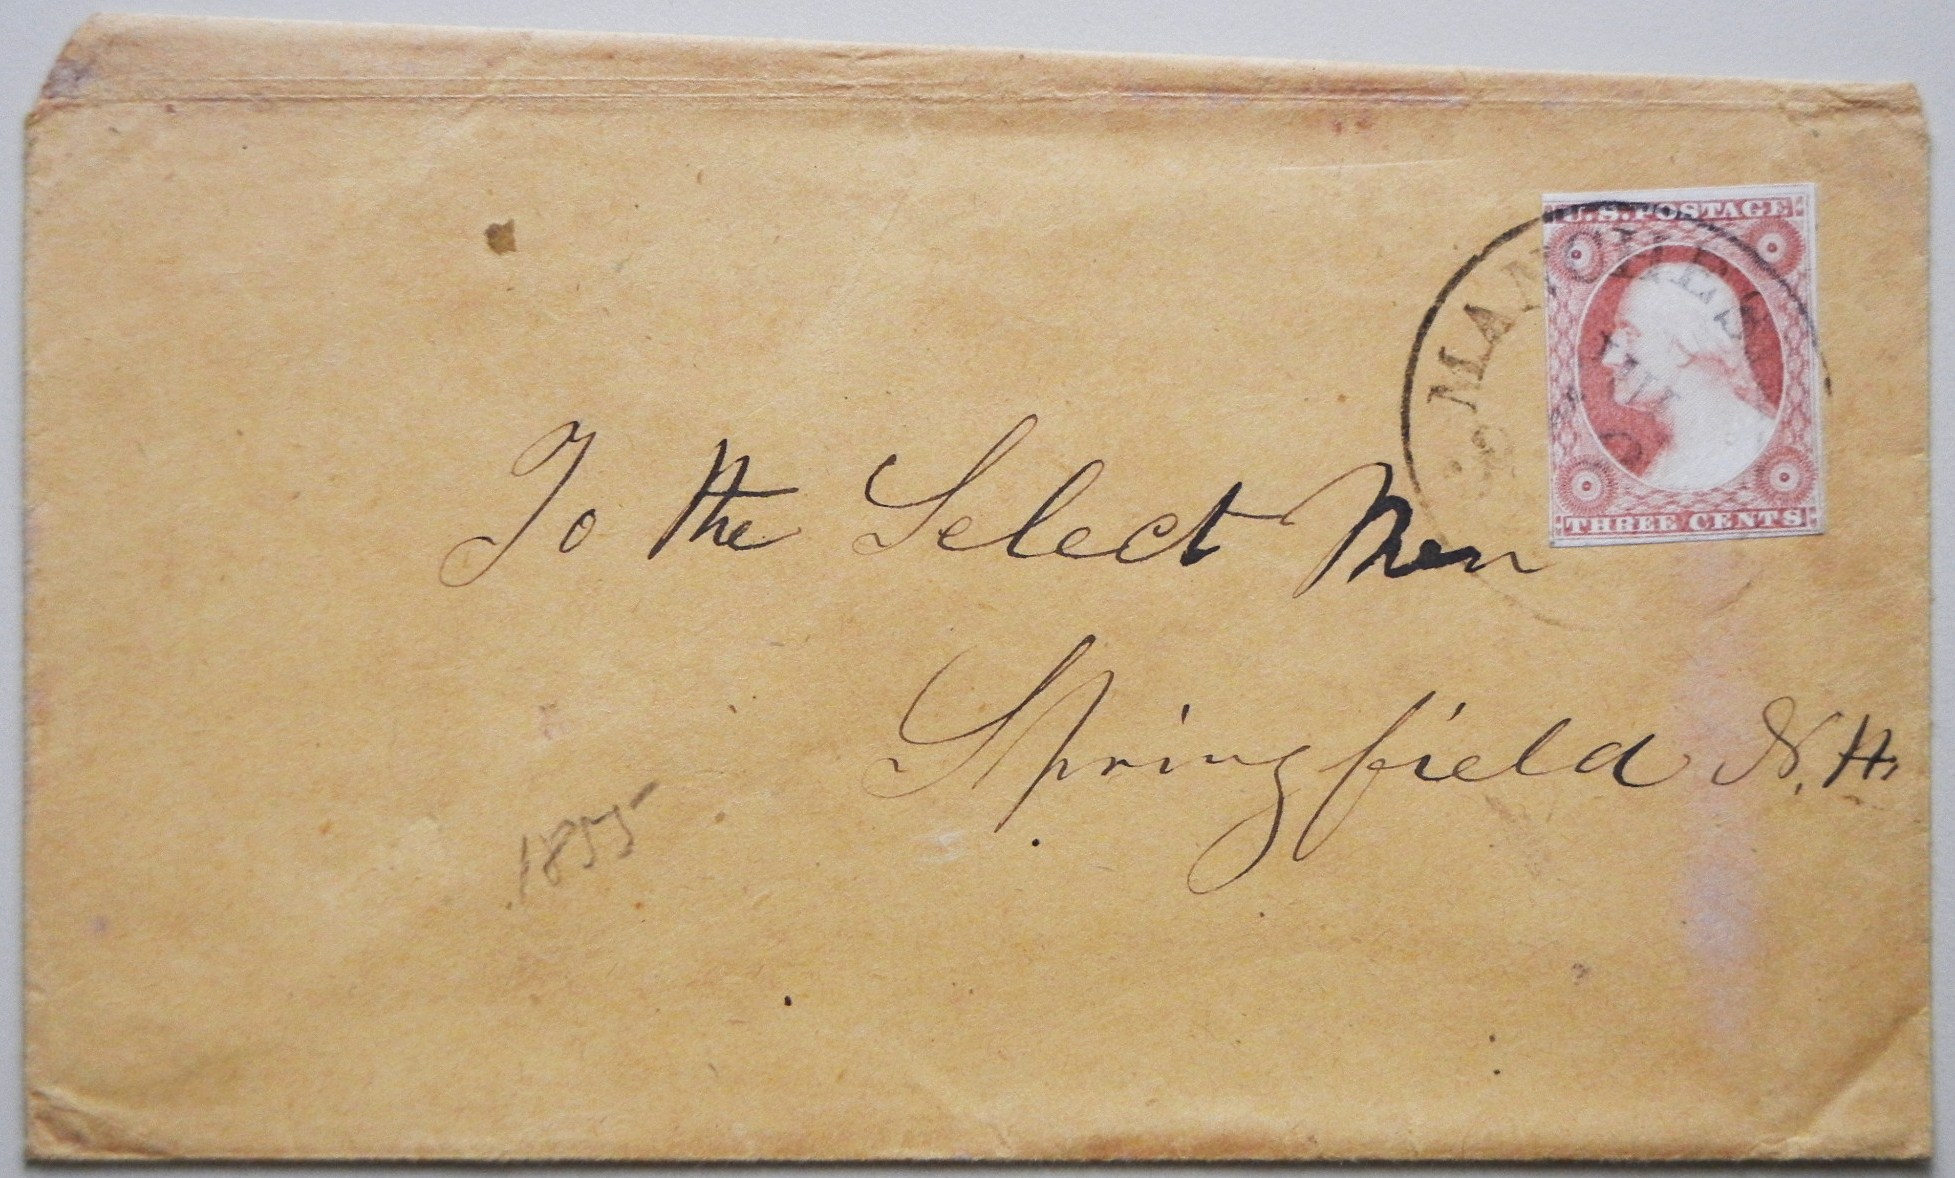 U.S. POSTAGE
THREE CENTS
To the Select Men
Springfield N.H.
1855